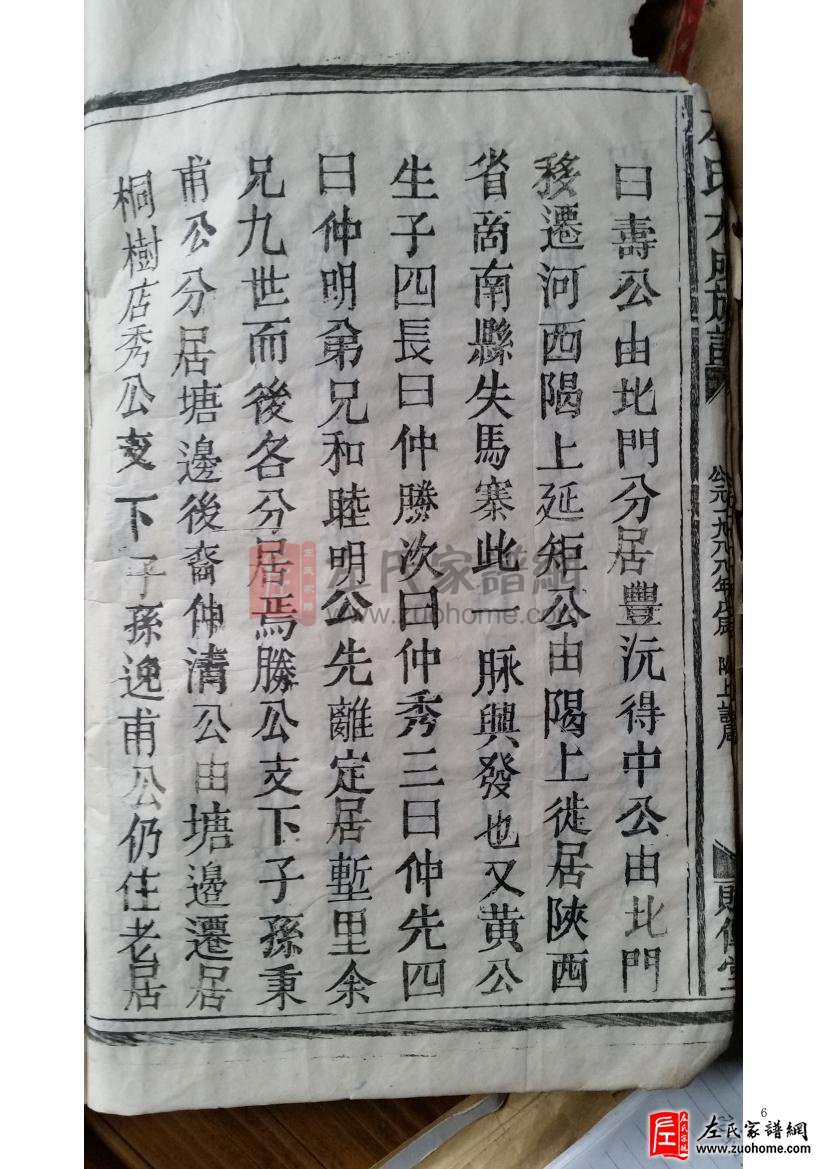 曰壽公由北門分居豐沅得中公由北門
移遷河西隝上延矩公由隝上徙居陝西
省商南縣失馬寨此一脉興發也又黄公
生子四長曰仲勝次曰仲秀三曰仲先四
曰仲明弟兄和睦明公先離定居塹里余
兄九世而後各分居焉勝公支下子孫秉
甫公分居塘邊後裔仲清公由塘邊遷居
桐樹店秀公支下子孫逸甫公仍住老居
左氏六屆族譜
公元一九八八年戊辰 隝上譜局
左氏家譜網
www.zuohome.com
左氏家譜
6
左氏家譜網
www.zuohome.com